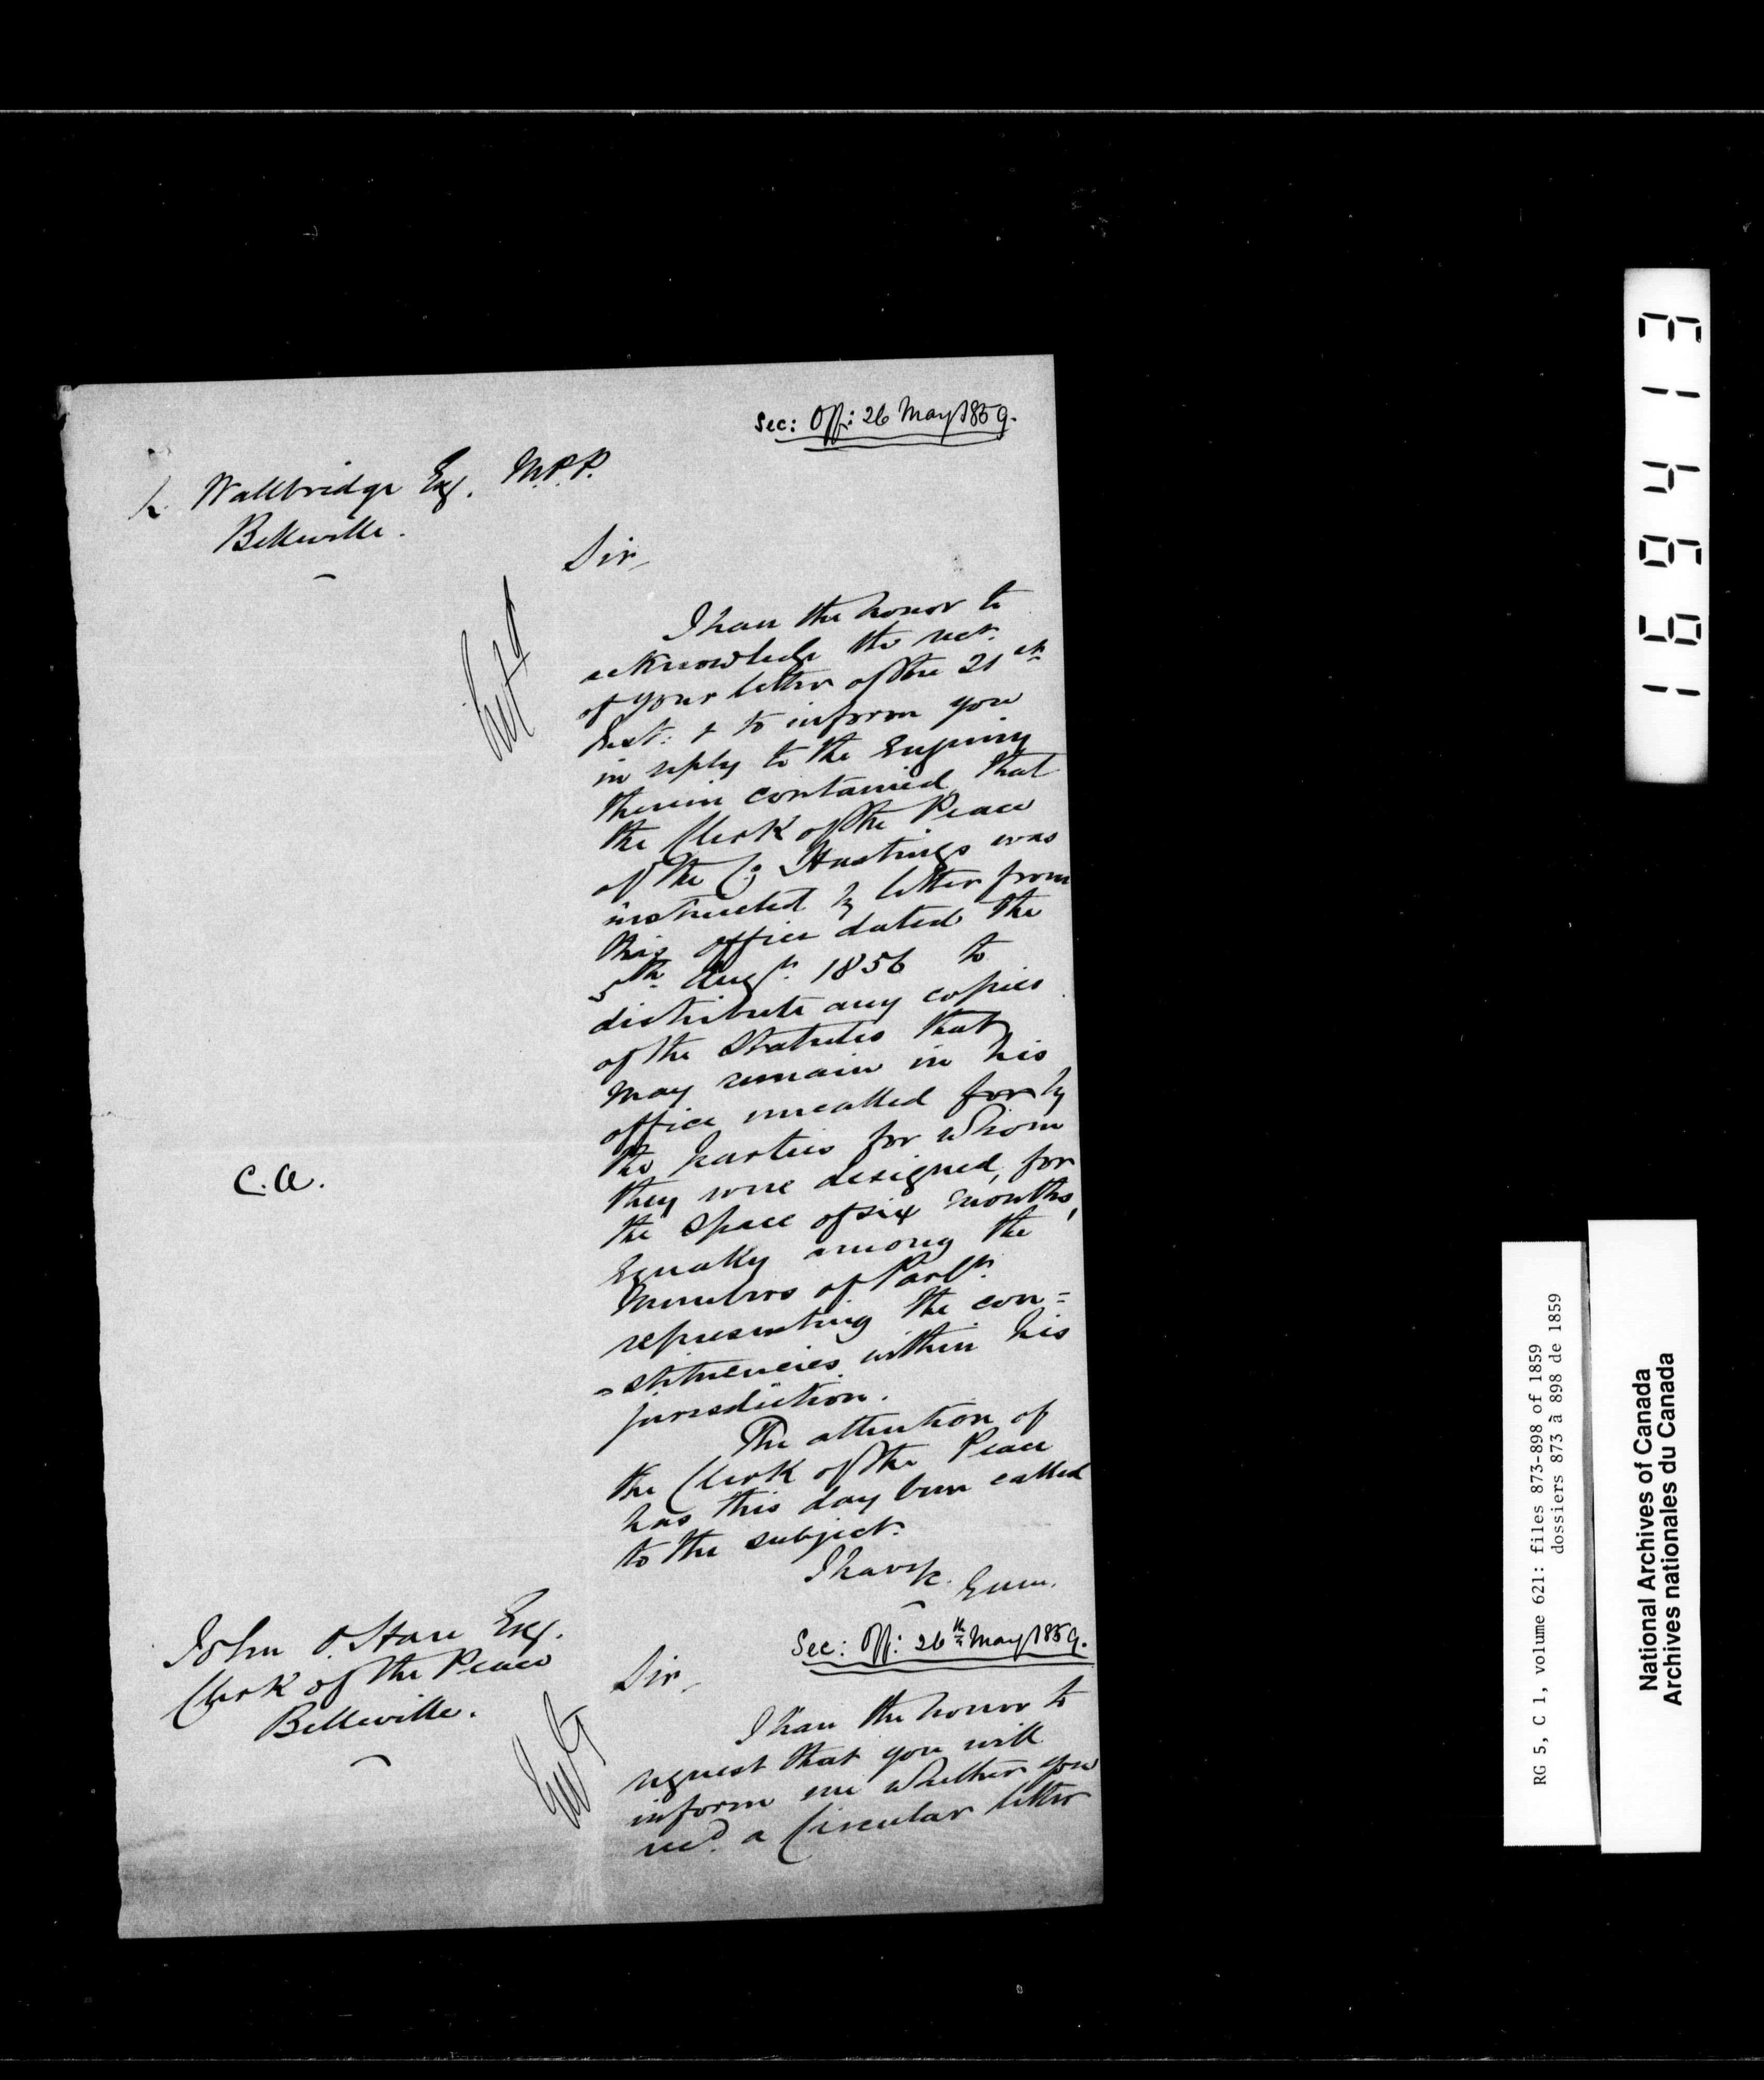 Sec: Off: 26 May 1859.
L. Wallbridge Esq. M.P.P.
Belleville.
Sir,
Ent^d
I have the honor to
acknowledge the rect.
of your letter of the 21st
Inst: & to inform you
in reply to the Enquiry
therein contained, that
the Clerk of the Peace
of the Co: Hastings was
instructed by letter from
this office dated the
5th Augt. 1856 to
distribute any copies
of the Statutes that
may remain in his
office uncalled for by
the parties for whom
they were designed, for
the space of six months,
Equally among the
Members of Parlt.
representing the con=
=stituencies within his
jurisdiction.
The attention of
the Clerk of the Peace
has this day been called
to the subject.
I have &c.
C.A.
Sec: Off: 26th May 1859.
John O'Hare Esq.
Clerk of the Peace
Belleville.
Sir,
I have the honor to
request that you will
inform me whether you
recd. a Circular letter
169413
RG 5, C 1, volume 621: files 873-898 of 1859
dossiers 873 à 898 de 1859
National Archives of Canada
Archives nationales du Canada